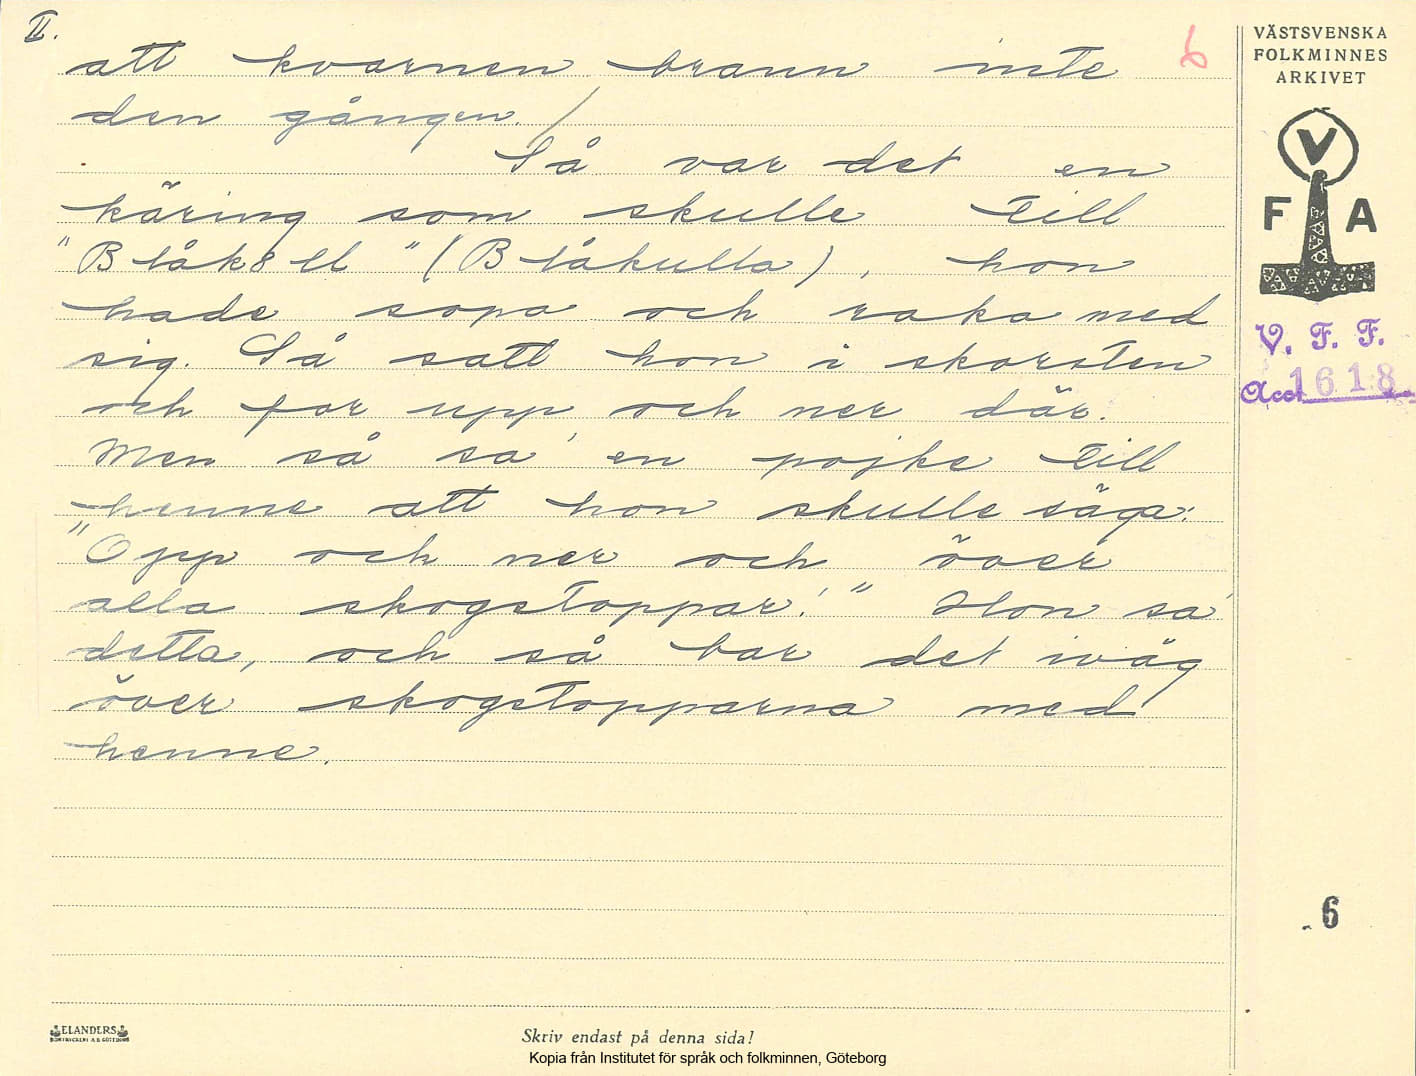 II.
6
att kvarnen brann inte
den gången. /
Så var det en
käring som skulle till
"Blåk8ll" (Blåkulla), hon
hade sopa och raka med
sig. Så satt hon i skorsten
och for upp och ner där.
Men så sa' en pojke till
henne att hon skulle säga:
"Opp och ner och över
alla skogstoppar!" Hon sa'
detta, och så bar det iväg
över skogstopparna med
henne.
VÄSTSVENSKA
FOLKMINNES
ARKIVET
V
F A
V. F. F.
Acc. 1618
6
ELANDERS
BOKTRYCKERI A.B. GÖTEBORG
Skriv endast på denna sida!
Kopia från Institutet för språk och folkminnen, Göteborg